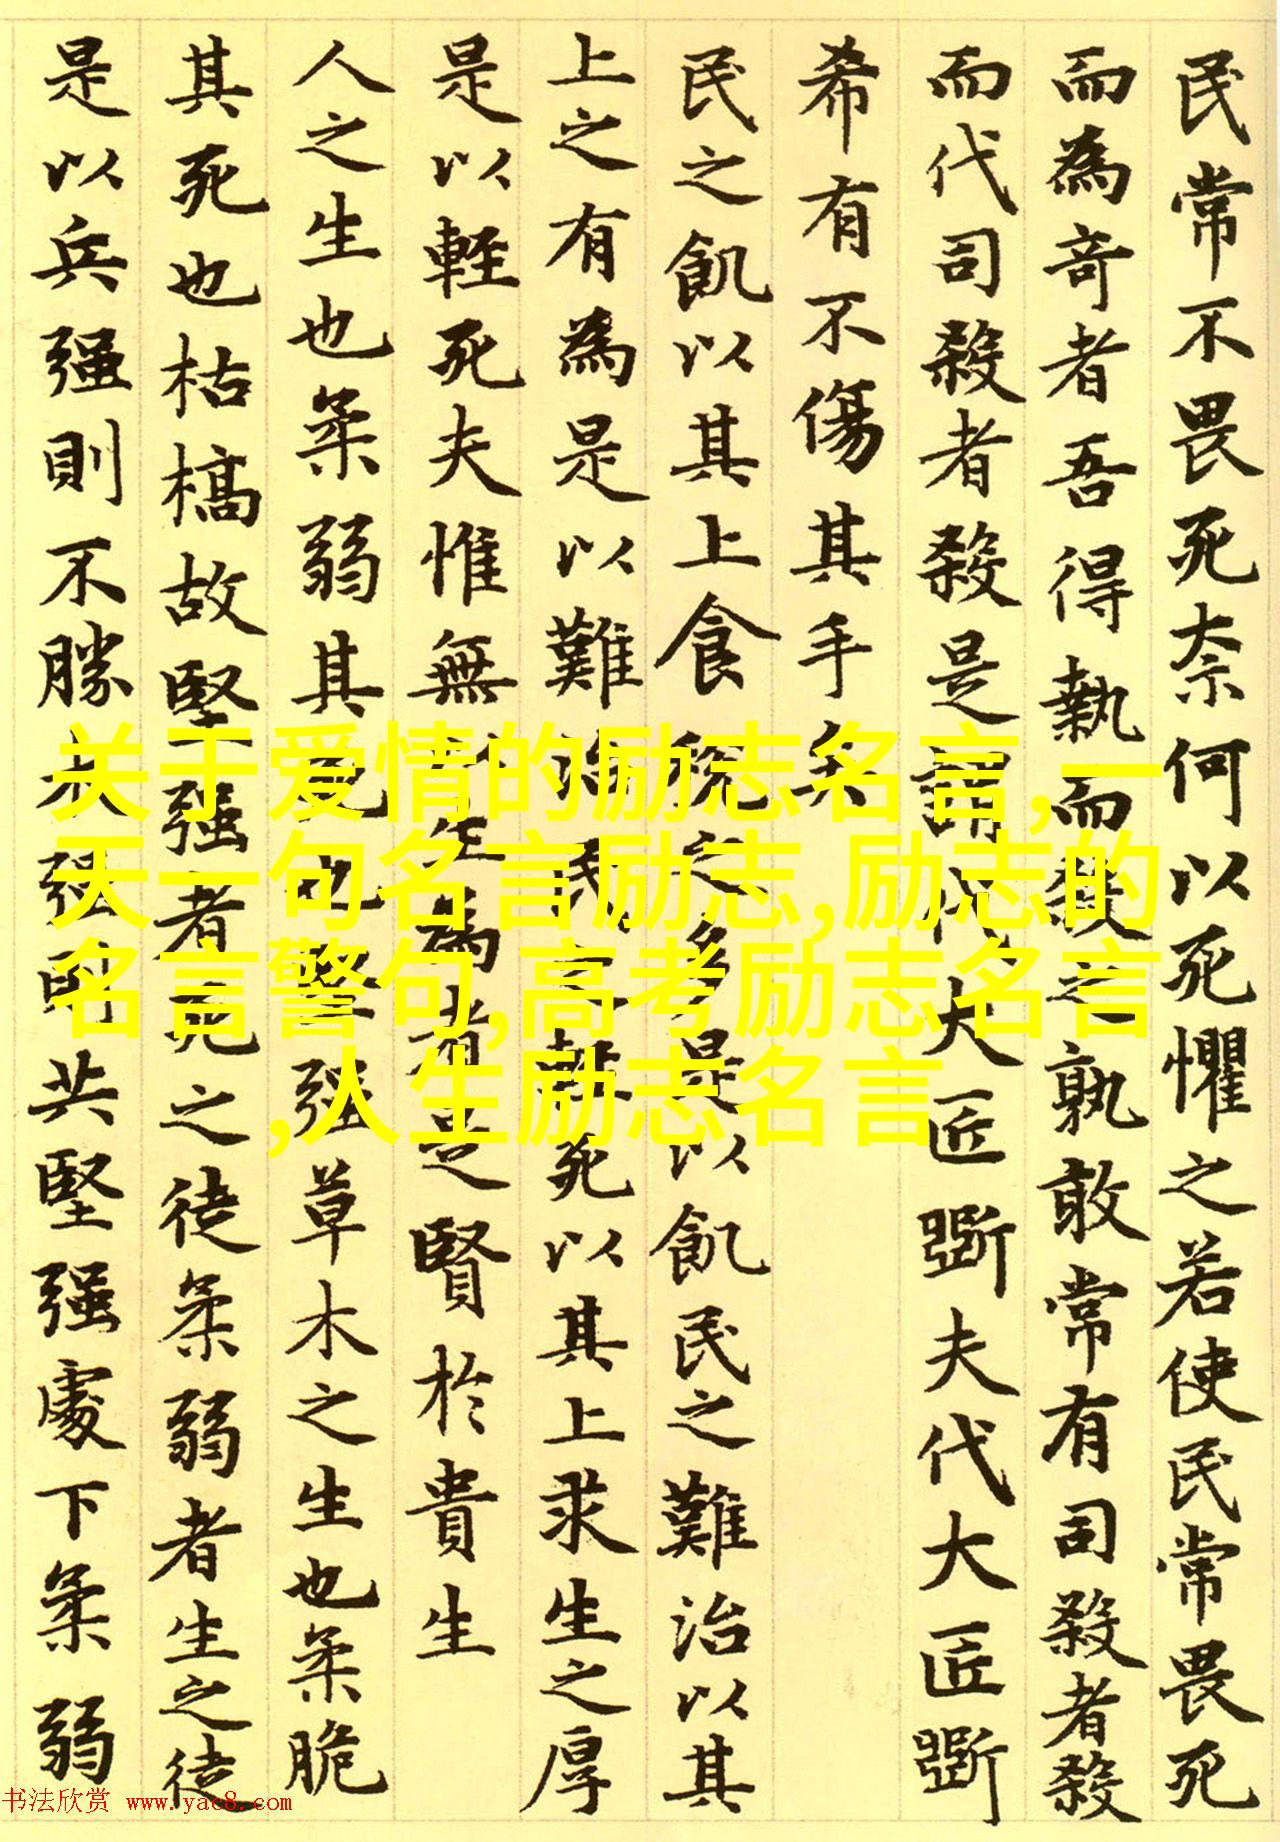 民常不畏死奈何以死懼之若使民常畏死
而為奇者吾得執而殺之孰敢常有司殺者殺
而代司殺者殺是謂代大匠斲夫代大匠斲
希有不傷其手矣
民之飢以其上食稅之多是以飢民之難治以其
上之有為是以難治民之輕死以其上求生之厚
是以輕死夫惟無以生為者是賢於貴生
人之生也柔弱其死也堅强草木之生也柔脆
其死也枯槁故堅强者死之徒柔弱者生之徒
是以兵强則不勝木强則共堅强處下柔弱
关于爱情的励志名言,一
天一句名言励志,励志的
名言警句,高考励志名言
,人生励志名言
书法欣赏 www.yac8.com